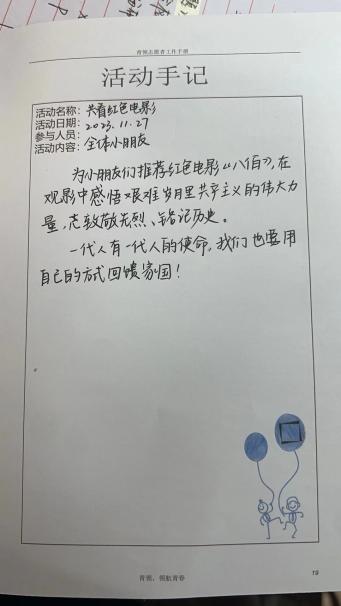 青领志愿者工作手册
活动手记
活动名称: 共看红色电影
活动日期: 2023.11.27
参与人员:
活动内容: 全体小朋友
为小朋友们推荐红色电影《八佰》,在
观影中感悟艰难岁月里共产主义的伟大力
量,志致敬先烈、铭记历史。
一代人有一代人的使命,我们也要用
自己的方式回馈家国!
青领,领航青春
19